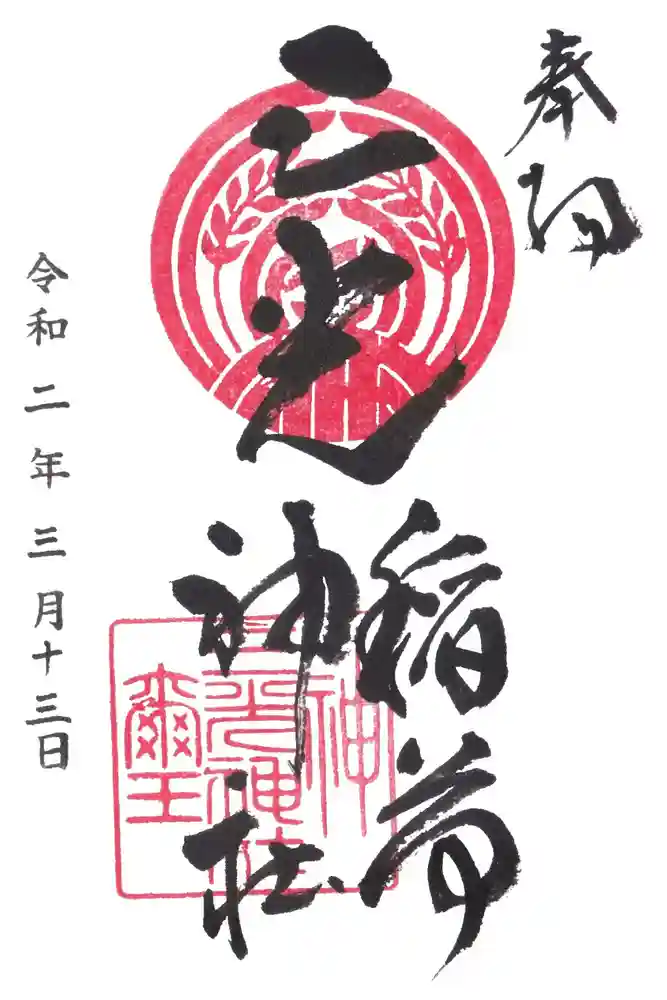 奉拝
三光
稲荷
神社
令和二年三月十三日
三光神社
神璽